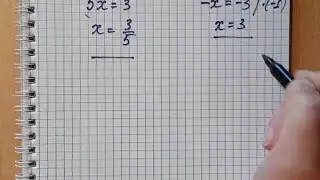 5x = 3
x = 3/5
-x = -3 / ·(-1)
x = 3